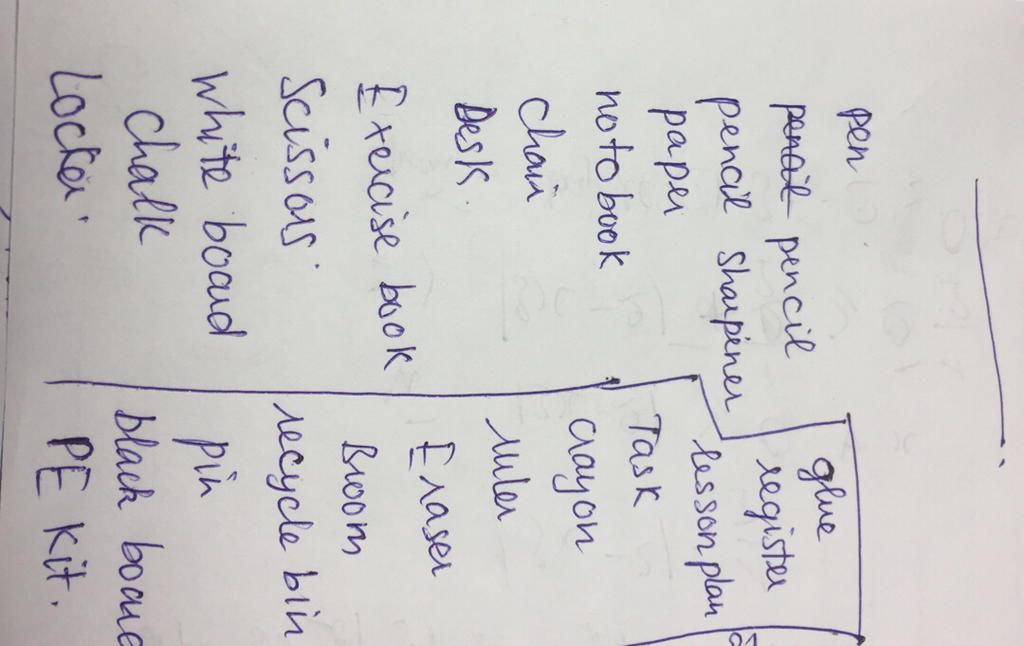 pen
pencil pencil
pencil sharpiner
paper
notobook
chair
Desk.
Exercise book
Scissors.
white board
chalk
Locker.
glue
register
lesson plan
Task
crayon
ruler
Eraser
Broom
recycle bin
pin
black board
PE Kit.